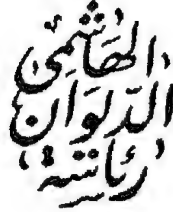 الهَاشمِيْ
الدّيوَان
رئاسَة